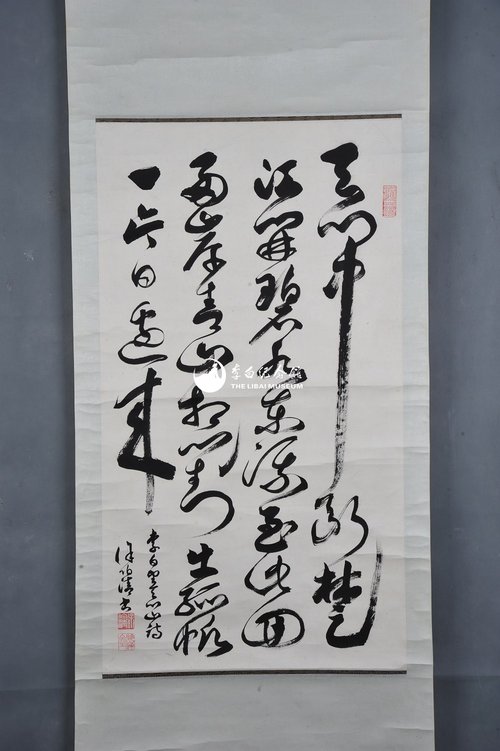 天門中斷楚
江開碧水東流至此回
兩岸青山相對出孤帆
一片日邊來
李白望天門山詩
徐伯清書
李白纪念馆
THE LIBAI MUSEUM